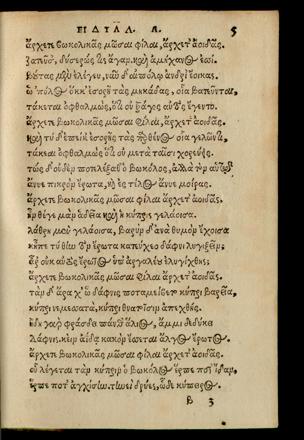 ΕΙΔΥΛΛ. Α. 5
ἄρχετε βωκολικᾶς μῶσαι φίλαι, ἄρχετ' ἀοιδᾶς.
ζατεῦσ', δύσερώς τις ἄγαν, καὶ ἀμήχανος ἐσσί.
βούτας μὰν ἐλέγευ, νῦν δ' αἰπόλῳ ἀνδρὶ ἔοικας.
ὡ 'πόλος ὅκκ' ἐσορῇ τὰς μηκάδας, οἷα βατεῦνται,
τάκεται ὀφθαλμὼς, ὅτι οὐ τράγος αὐτὸς ἔγεντο.
ἄρχετε βωκολικᾶς μῶσαι φίλαι, ἄρχετ' ἀοιδᾶς.
καὶ τὺ δ' ἐπεί κ' ἐσορῇς τὰς παρθένος οἷα γελῶντι,
τάκεαι ὀφθαλμὼς, ὅτι οὐ μετὰ ταῖσι χορεύεις.
τὼς δ' οὐδὲν ποτελέξαθ' ὁ βωκόλος, ἀλλὰ τὸν αὑτῶ
ἄνυε πικρὸν ἔρωτα, καὶ ἐς τέλος ἄνυε μοίρας.
ἄρχετε βωκολικᾶς μῶσαι φίλαι, ἄρχετ' ἀοιδᾶς.
ἦνθέ γε μὰν ἁδεῖα καὶ ἁ κύπρις γελάοισα,
λάθρια μὲν γελάοισα, βαρὺν δ' ἀνὰ θυμὸν ἔχοισα
κἦπε τύ θην τὸν ἔρωτα κατεύχεο δάφνι λυγιξεῖν.
ἆρ' οὐκ αὐτὸς ἔρωτος ὑπ' ἀργαλέω ἐλυγίχθης;
ἄρχετε βωκολικᾶς μῶσαι φίλαι, ἄρχετ' ἀοιδᾶς.
τὰν δ' ἄρα χ' ὡ δάφνις ποταμείβετο κύπρι βαρεῖα,
κύπρι νεμεσσατὰ, κύπρι θνατοῖσιν ἀπεχθής.
ἤδη γὰρ φράσδει πάνθ' ἅλιος, ἄμμι δεδύκει
δάφνις, κἠν ἀΐδα κακὸν ἔσσεται ἄλγος ἔρωτος.
ἄρχετε βωκολικᾶς μῶσαι φίλαι ἄρχετ' ἀοιδᾶς.
οὐ λέγεται τὰν κύπριν ὁ βωκόλος ἕρπε ποτ' ἴδαν,
ἕρπε ποτ' ἀγχίσαν. τηνεὶ δρύες, ὧδε κύπειρος
Β 3